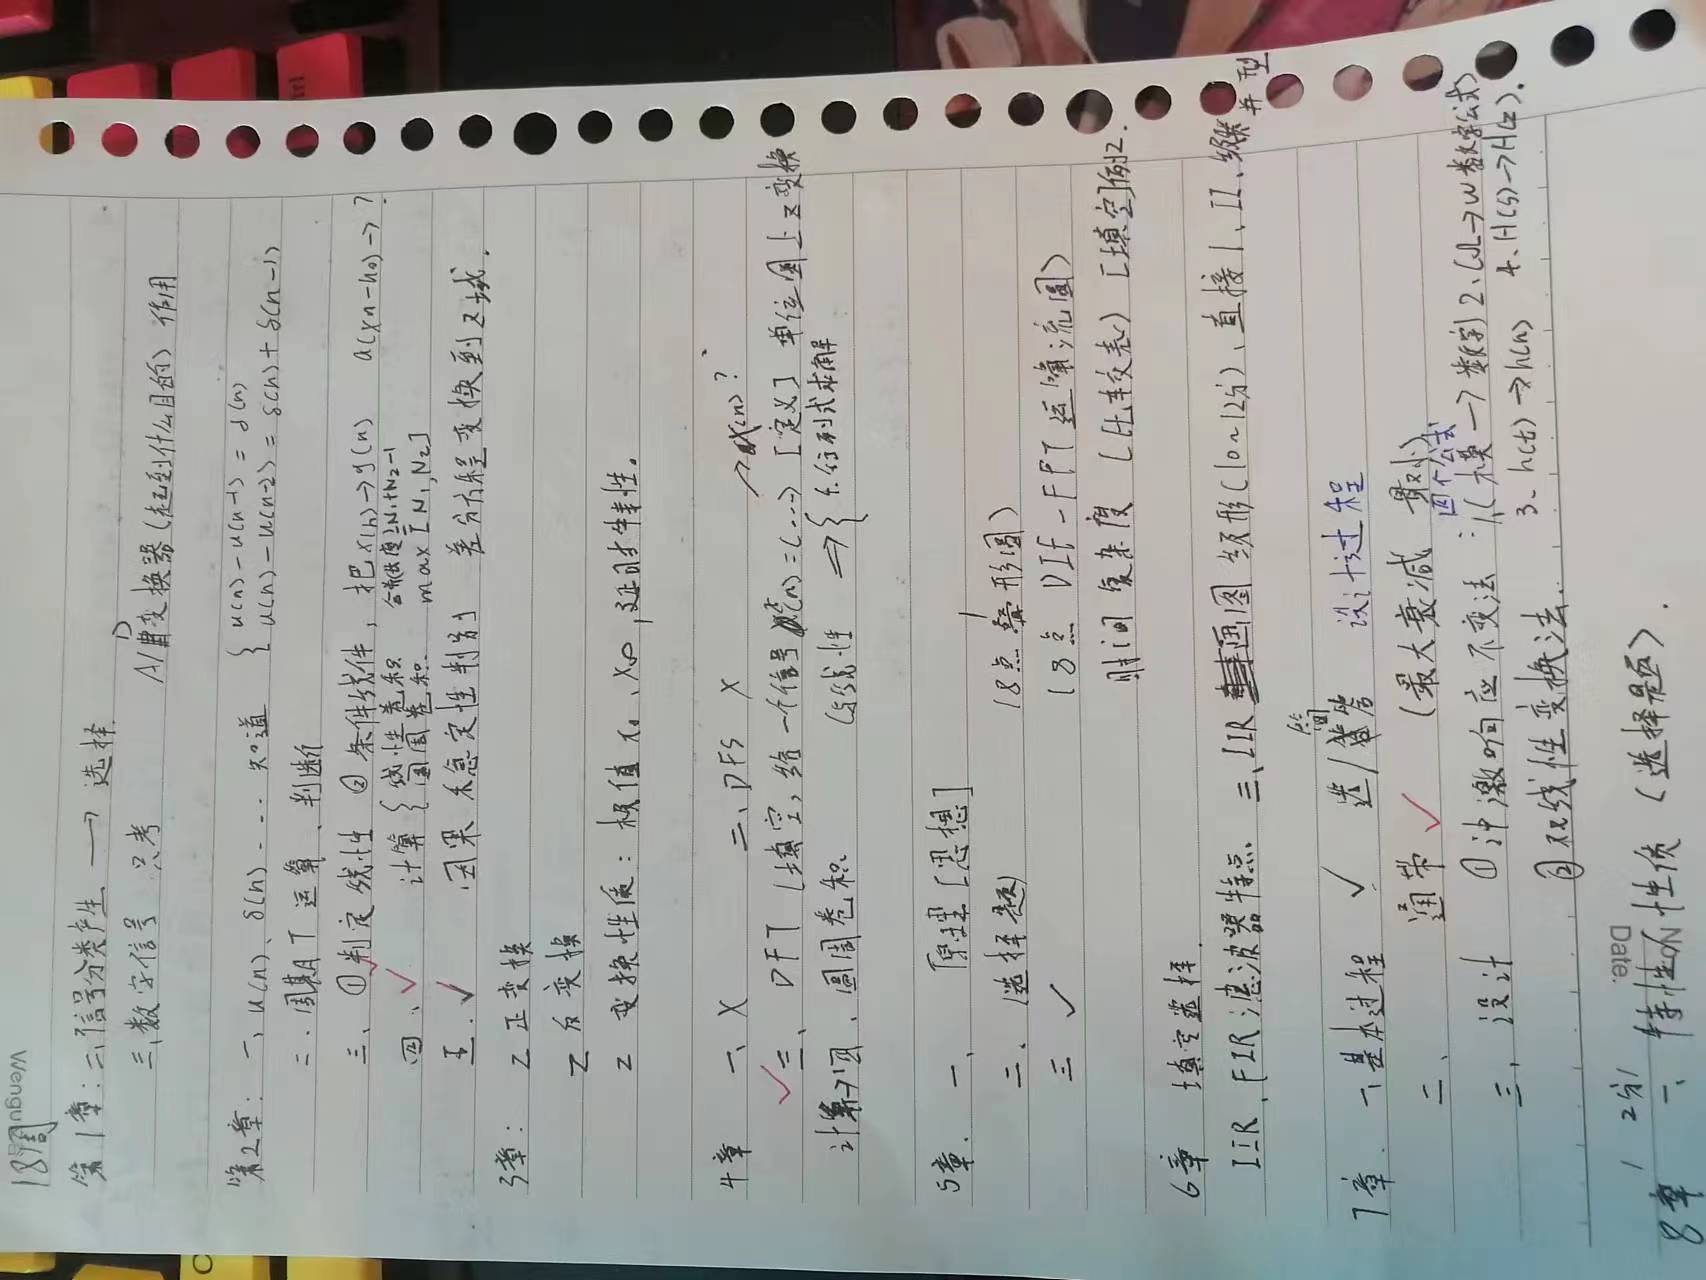 Wengu
18周
第1章: 二、信号分类产生 → 选择
三、数字信号 只考 A/D变换器(起到什么目的) 作用
第2章: 一、u(n)、δ(n)... 知道 { u(n)-u(n-1)=δ(n)
u(n)-u(n-2)=δ(n)+δ(n-1)
二.周期T 运算、判断
三、①判定线性 ②条件线件, 把x(n)→y(n) a(xn-n0)→?
四、✓ 计算{ 线性卷积 N1+N2-1
圆周卷积 max[N1,N2]
五.✓ 因果稳定性判别 差分方程变换到Z域.
3章: Z正变换
Z反变换
Z 变换性质: 极值x0、x∞,延时特性。
4章 一、X 二、DFS X →x(n)?
✓三、DFT (填空,给一个信号x(n)=(...) [定义] 单位圆上Z变换
计算→四、圆周卷积 (与线性 ⇒{ 1.行列式求解
5章. 一、 原理[思想]
二、(选择题) (8点蝶形图)
三 ✓ (8点 DIF-FFT运算流图)
时间复杂度 (比较表) [填空]例2.
6章 填空选择.
IIR、FIR滤波器特点 三、IIR画图 (10~12分)、直接I、II、级联
并型
7章. 一、基本过程 ✓ 选/简答 设计过程
二、 通带✓ (最大衰减 最小)
四个公式
三、设计 ①冲激响应不变法: 1.(模→数字) 2.(Ω→w数字公式)
3、h(t)→h(n) 4、H(s)→H(z).
②双线性变换法.
Date.
No
2分
8章 一、特性、性质(选择题).